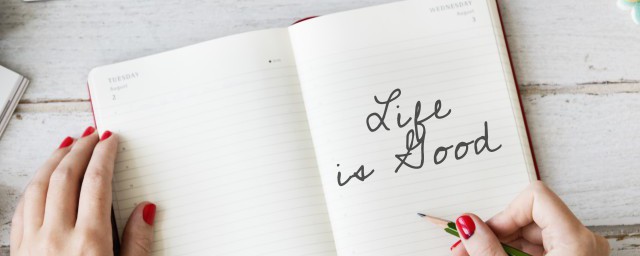 TUESDAY
August
2
WEDNESDAY
August
3
Life
is Good